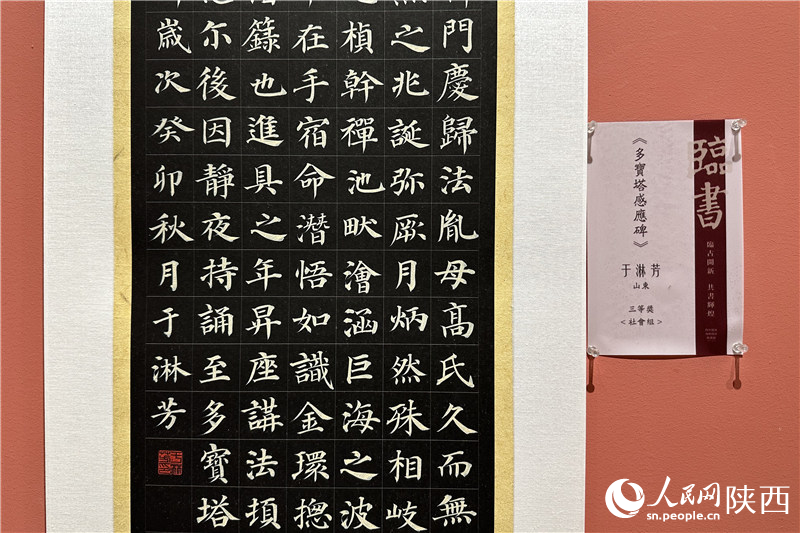 門慶歸法胤母髙氏久而無
之兆誕弥厥月炳然殊相岐
楨幹禪池畎澮涵巨海之波
在手宿命潛悟如識金環揔
籙也進具之年昇座講法頂
尓後因靜夜持誦至多寶塔
歲次癸卯秋月于淋芳
臨書
臨古開新 共書輝煌
《多寶塔感應碑》
于淋芳
山東
三等獎
<社會組>
人民网 陕西
sn.people.cn